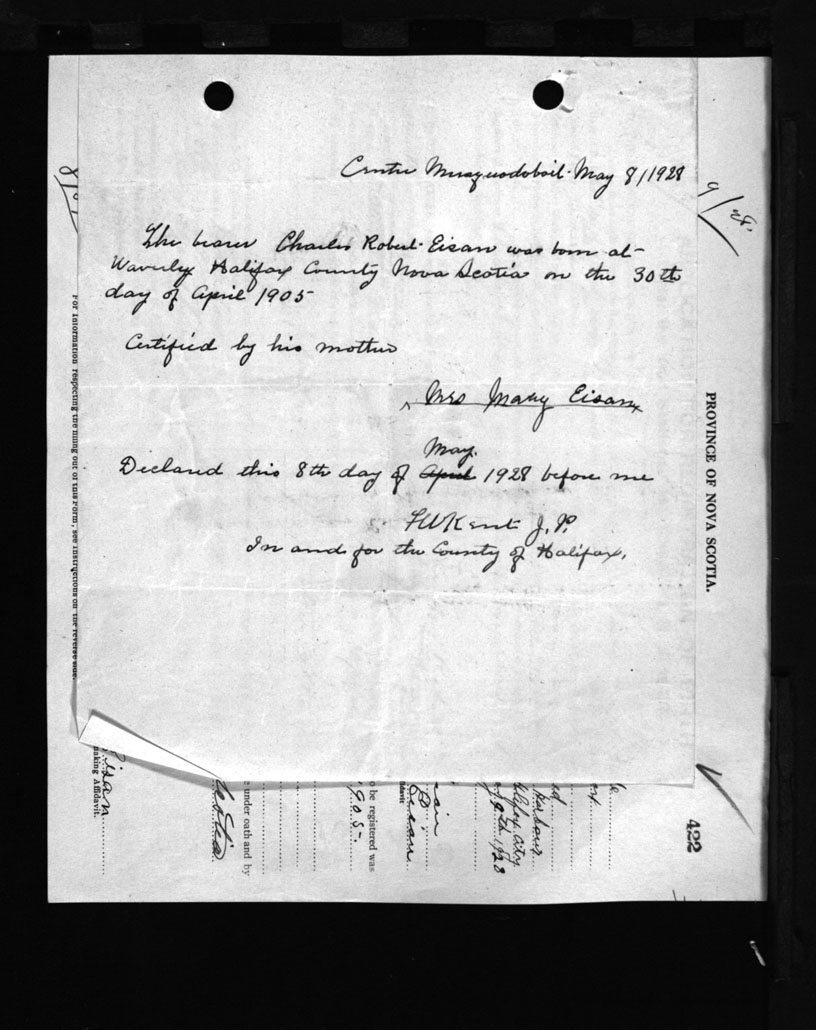 Centre Musquodoboit. May 8/1928
The bearer Charles Robert Eisan was born at
Waverly Halifax County Nova Scotia on the 30th
day of April 1905
Certified by his mother
Mrs Mary Eisan
May.
Declared this 8th day of April 1928 before me
J. P.
In and for the County of Halifax.
For Information respecting the filling out of this Form, see instructions on the reverse side.
PROVINCE OF NOVA SCOTIA.
422
Eisan
making Affidavit.
Scotia
e under oath and by
o be registered was
1905.
davit
Harbour
City
9th 1928